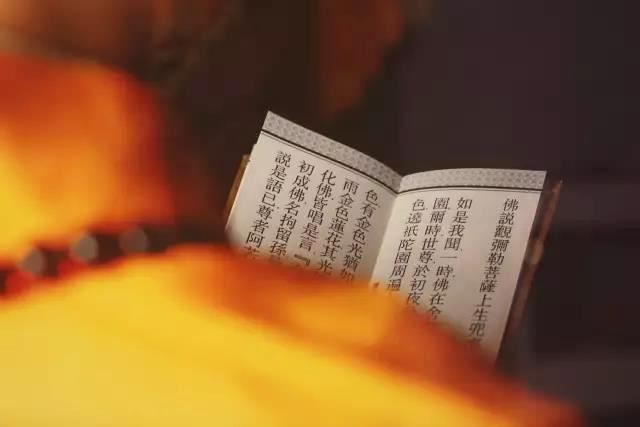 佛說觀彌勒菩薩上生兜
如是我聞一時佛在
園爾時世尊於初夜
色遶祇陀園周遍
色有金色光猶如
雨金色蓮花其光
化佛皆唱是言『
初成佛名拘留孫
說是語已尊者阿